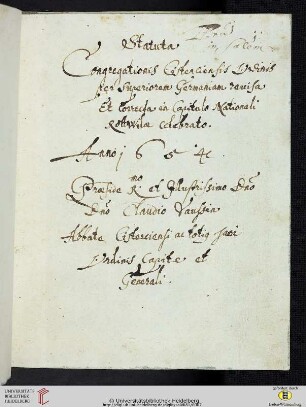 Statuta
Congregationis Cisterciensis Ordinis
per Superiorem Germaniam revisa
Et correcta in Capitulo Nationali
Rottwilae celebrato.
Anno 1654
Praeside Rmo et Illustrissimo Dno
Dno Claudio Vaussin
Abbate Cisterciensi ac totiq sacri
Ordinis Capite et
Generali.
UNIVERSITÄTS-
BIBLIOTHEK
HEIDELBERG
© Universitätsbibliothek Heidelberg